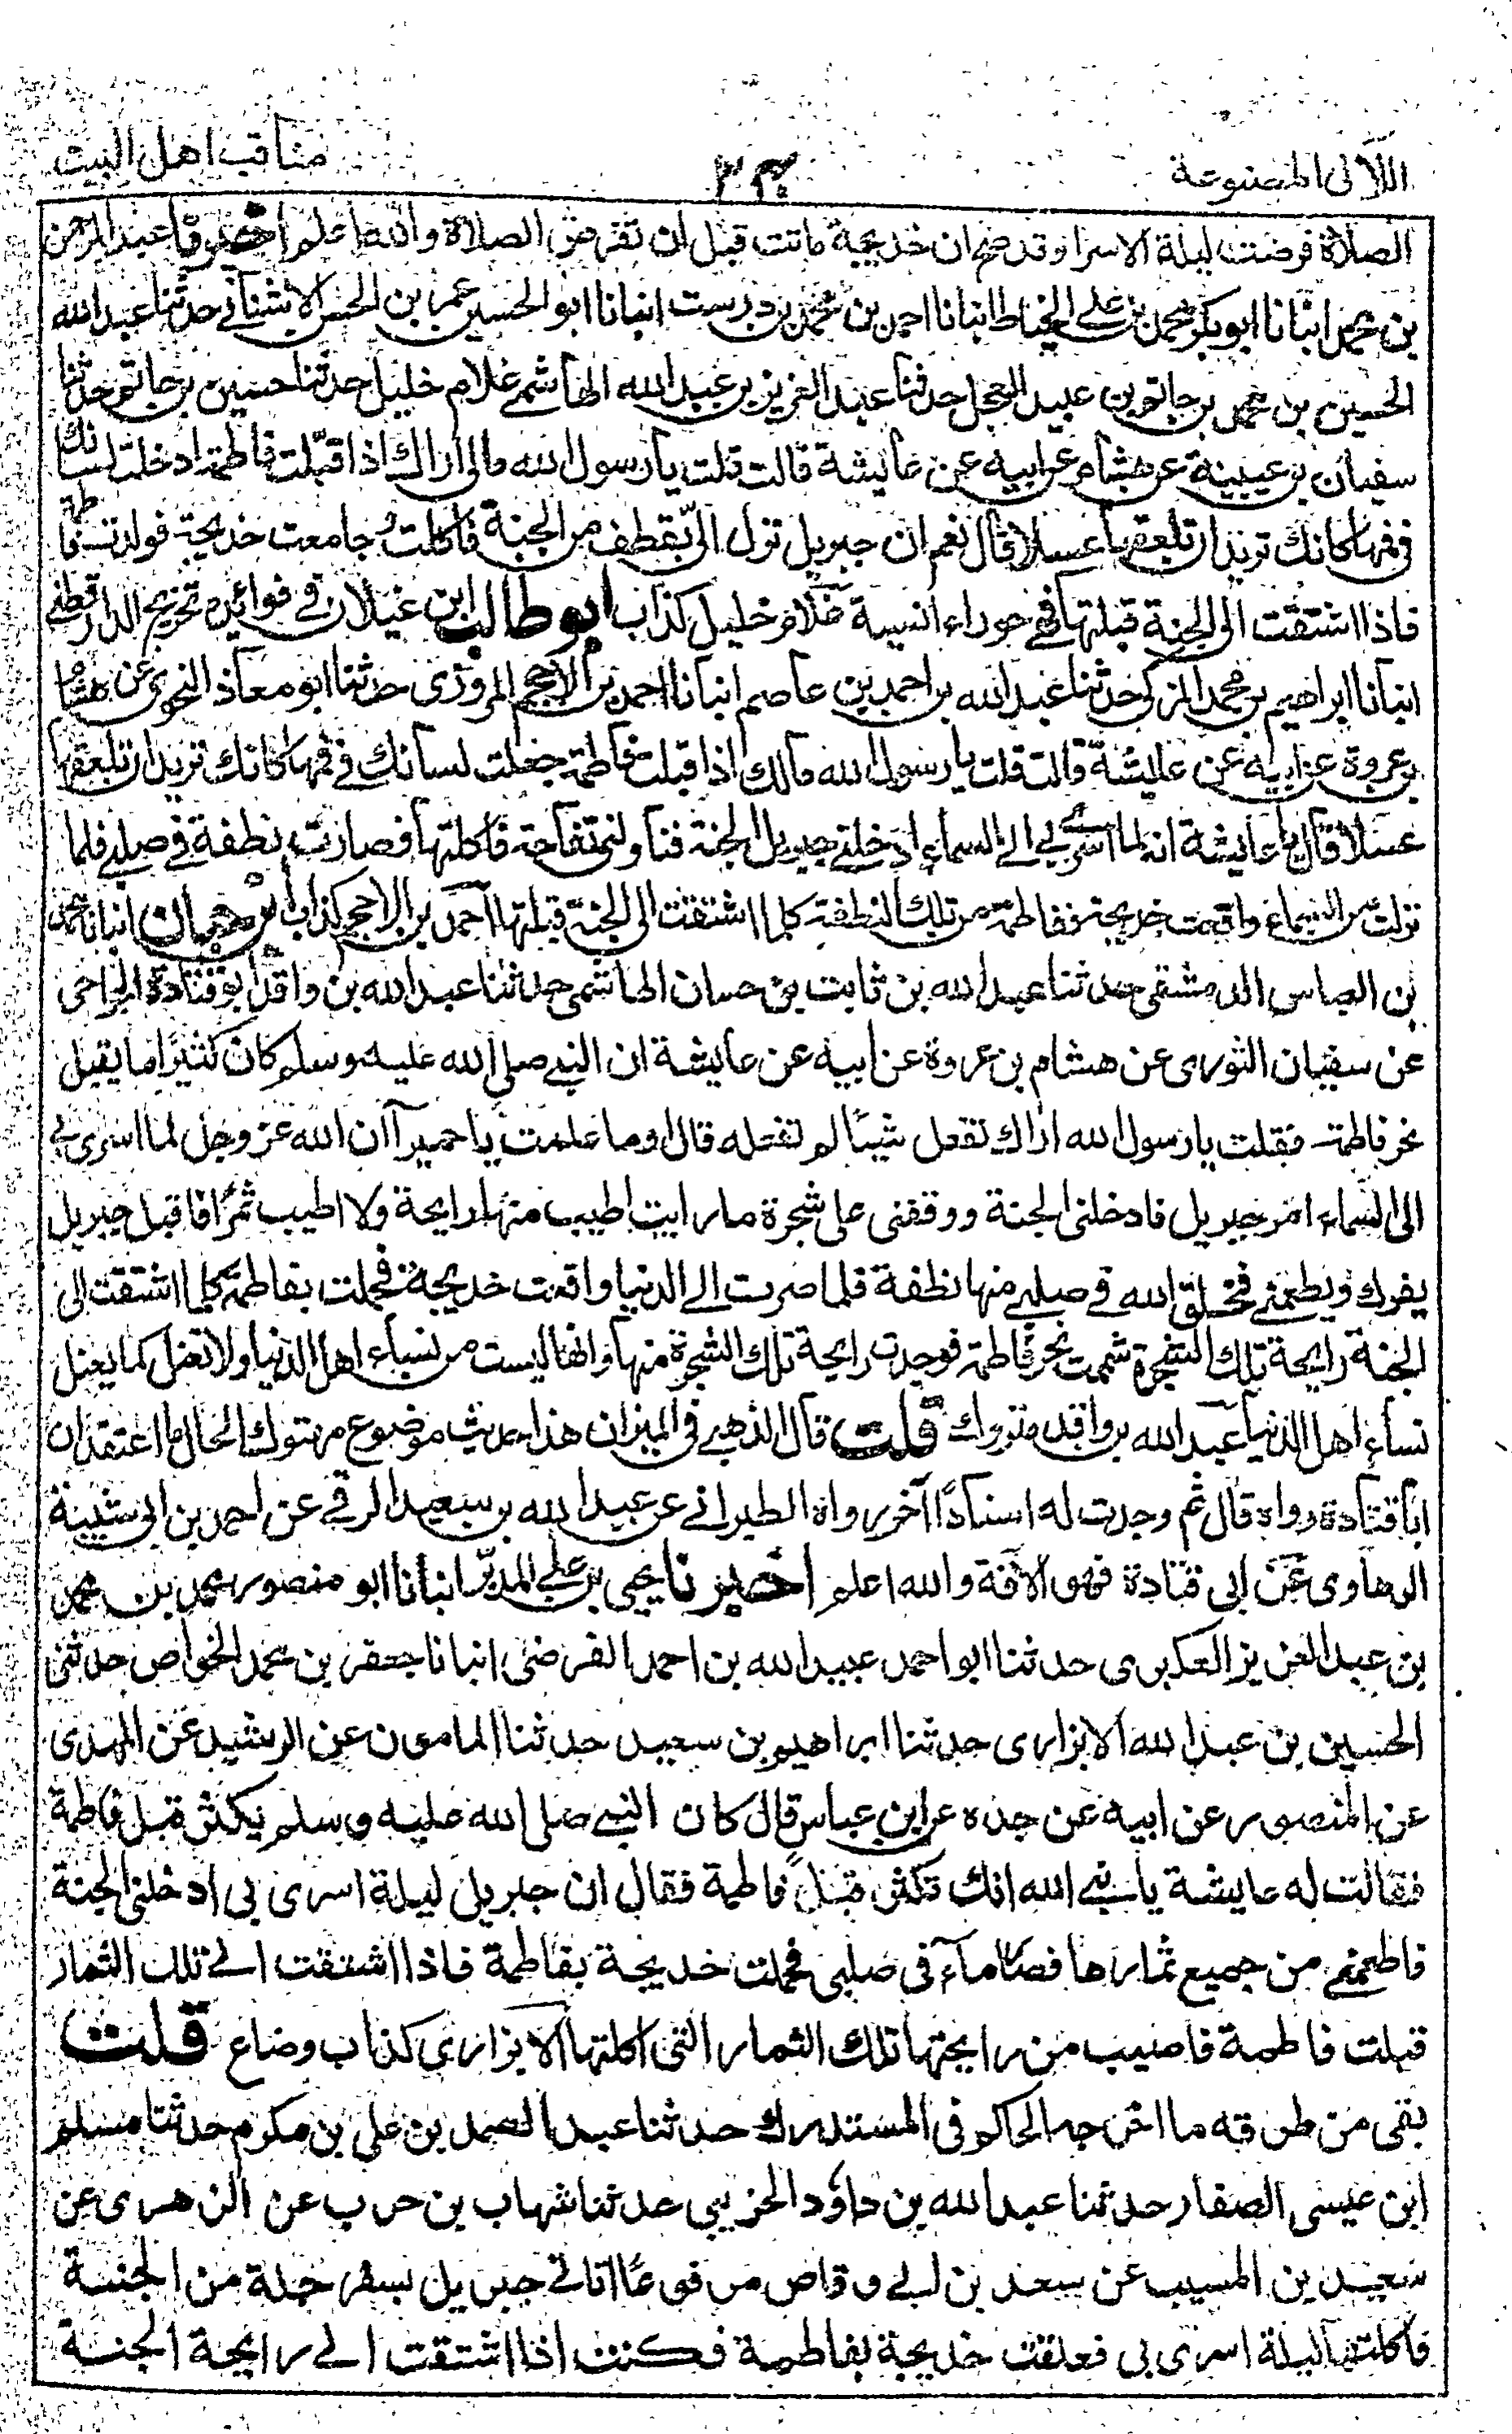 اللآلى المصنوعة
مناقب اهل البيت
الصلاة فرضت ليلة الاسرا وقد صح ان خديجة ماتت قبل ان تفرض الصلاة والله اعلم اخبرنا عبد الرحمن
بن محمد انبانا ابو بكر محمد بن علي الخياط انبانا احمد بن محمد بن درست انبانا ابو الحسين عمر بن الحسن الاشناني حدثنا عبد الله
الحسين بن محمد بن حاتم بن عبيد العجل حدثنا عبد العزيز بن عبد الله الهاشمي غلام خليل حدثنا حسين بن حاتم حدثنا
سفيان بن عيينة عن هشام عن ابيه عن عايشة قالت قلت يا رسول الله مالى اراك اذا قبّلت فاطمة ادخلت لسانك
في فمها كانك تريد ان تلعقها عسلا قال نعم ان جبريل نزل الىّ بقطف من الجنة فاكلت وجامعت خديجة فولدت فاطمة
فاذا اشتقت الى الجنة قبلتها فهي حوراء انسية غلام خليل كذاب ابو طالب ابن غيلان في فوائده تخريج الدارقطني
انبانا ابراهيم بن محمد المزكى حدثنا عبد الله بن احمد بن عاصم انبانا احمد بن الاحجم المروزى حدثنا ابو معاذ النحوى عن هشام
بن عروة عن ابيه عن عايشة قالت قلت يا رسول الله مالك اذا قبلت فاطمة جعلت لسانك في فمها كانك تريد ان تلعقها
عسلا قال يا عايشة انه لما اسرى بي الى السماء ادخلني جبريل الجنة فناولنى تفاحة فاكلتها فصارت نطفة في صلبي فلما
نزلت من السماء واقعت خديجة ففاطمة من تلك النطفة كلما اشتقت الى الجنة قبلتها احمد بن الاحجم كذاب ابن حبان انبانا محمد
بن العباس الدمشقى حدثنا عبد الله بن ثابت بن حسان الهاشمى حدثنا عبد الله بن واقد ابو قتادة الحرانى
عن سفيان الثورى عن هشام بن عروة عن ابيه عن عايشة ان النبي صلى الله عليه وسلم كان كثيرًا ما يقبل
نحر فاطمة فقلت يا رسول الله اراك تفعل شيئا لم تفعله قال اوما علمت يا حميرآ ان الله عز وجل لما اسرى بي
الى السماء امر جبريل فادخلنى الجنة ووقفنى على شجرة ما رايت اطيب منها رايحة ولا اطيب ثمرًا فاقبل جبريل
يفرك ويطعمني فخلق الله في صلبي منها نطفة فلما صرت الى الدنيا واقعت خديجة فحملت بفاطمة كلما اشتقت الى
الجنة رايحة تلك الشجرة شممت نحر فاطمة فوجدت رايحة تلك الشجرة منها وانها ليست من نساء اهل الدنيا ولا تعتل كما يعتل
نساء اهل الدنيا عبد الله بن واقد متروك قلت قال الذهبي في الميزان هذا حديث موضوع مهتوك الحال ما اعتقد ان
ابا قتادة رواه قال ثم وجدت له اسنادًا آخر رواه الطبراني عن عبد الله بن سعيد الرقي عن احمد بن ابى شيبة
الرهاوى عن ابى قتادة فهو الآفة والله اعلم اخبرنا يحيى بن علي المدبّر انبانا ابو منصور محمد بن محمد
بن عبد العزيز العكبرى حدثنا ابو احمد عبيد الله بن احمد الفرضى انبانا جعفر بن محمد الخواص حدثنى
الحسين بن عبد الله الابزارى حدثنا ابراهيم بن سعيد حدثنا المامون عن الرشيد عن المهدى
عن المنصور عن ابيه عن جده عن ابن عباس قال كان النبي صلى الله عليه وسلم يكثر قبل فاطمة
فقالت له عايشة يا نبي الله انك تكثر قبل فاطمة فقال ان جبريل ليلة اسرى بى ادخلنى الجنة
فاطعمني من جميع ثمارها فصار مآء فى صلبى فحملت خديجة بفاطمة فاذا اشتقت الى تلك الثمار
قبلت فاطمة فاصيب من رايحتها تلك الثمار التى اكلتها الابزارى كذاب وضاع قلت
بقى من طرقه ما اخرجه الحاكم فى المستدرك حدثنا عبد الصمد بن على بن مكرم حدثنا مسلم
ابن عيسى الصفار حدثنا عبد الله بن داود الخريبى حدثنا شهاب بن حرب عن الزهرى عن
سعيد بن المسيب عن سعد بن ابي وقاص مرفوعًا اتاني جبريل بسفرجلة من الجنة
فاكلتها ليلة اسرى بى فعلقت خديجة بفاطمة فكنت اذا اشتقت الى رايحة الجنة